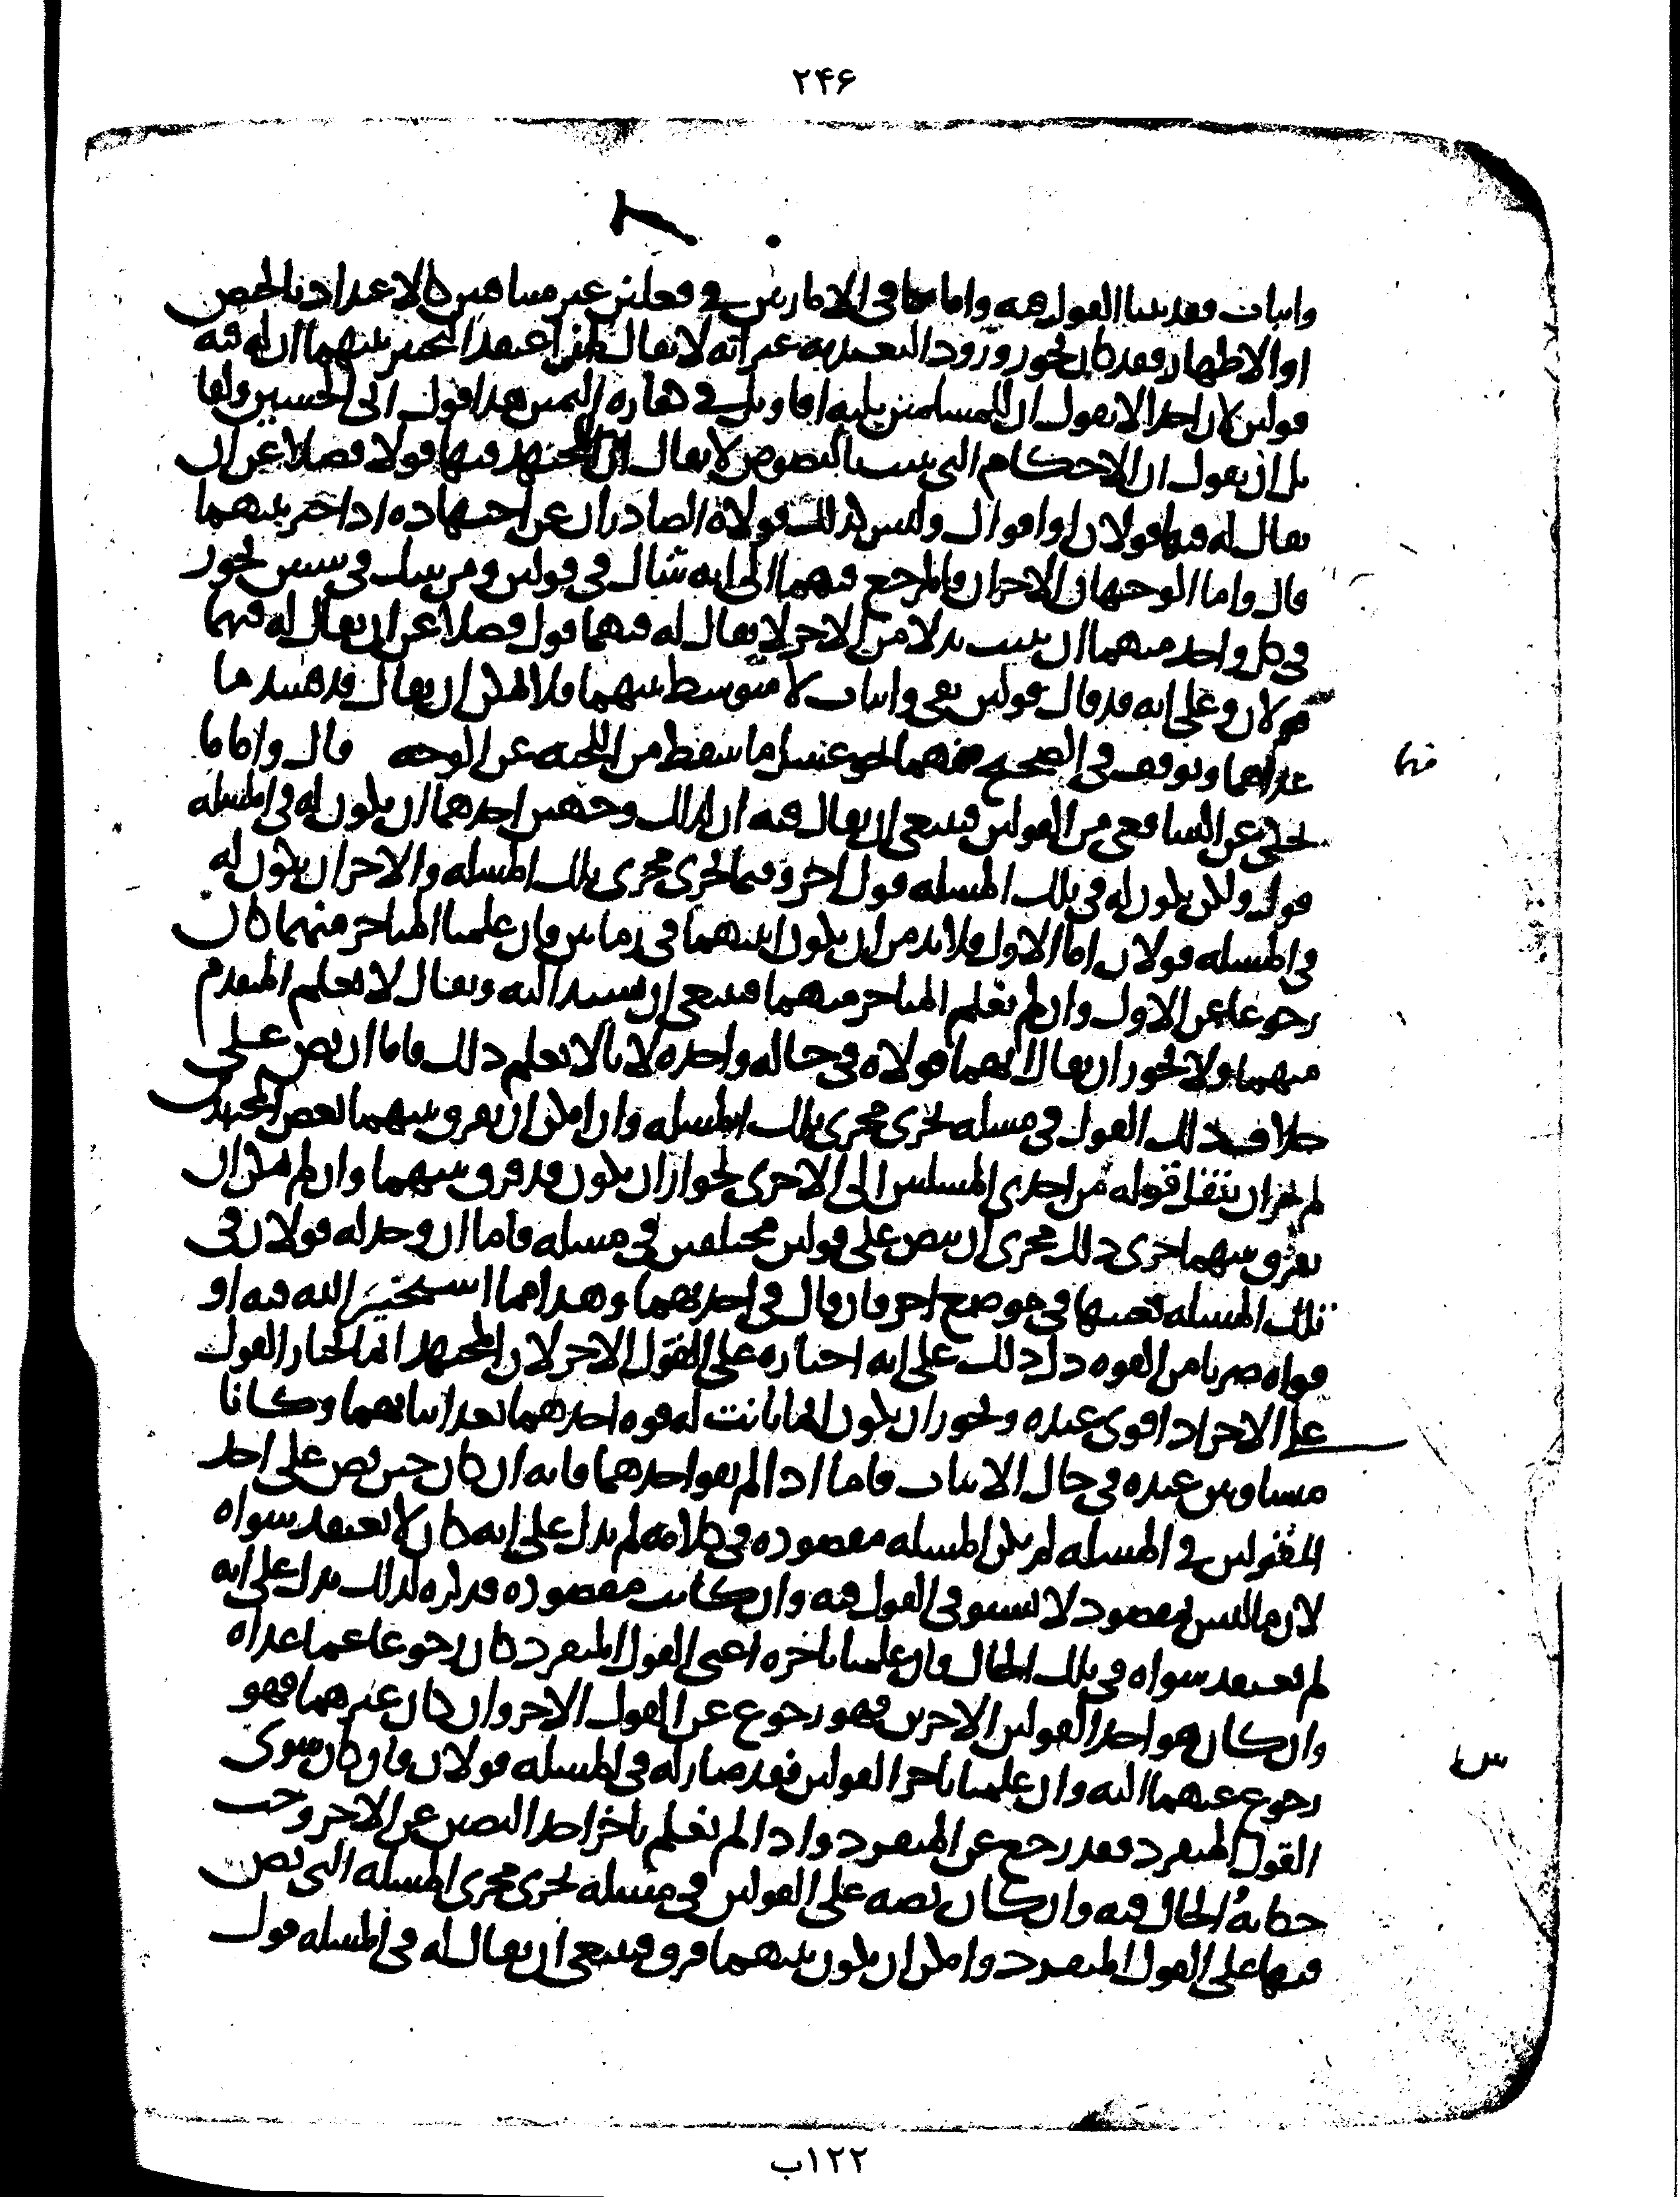 ۲۴۶
واثبات فقد بينا القول فيه واما تكافى الامارتين في فعلين غير متنافيين كالاعتداد بالحيض
او الاطهار فقد كان يجوز ورود التعبد به غير انه لا يقال لمن اعتقد التخيير بينهما ان له فيه
قولين لان احدا لا يقول ان للمسلمين ثلثة اقاويل في كفارة اليمين هذا قول ابي الحسين ولقا
بل ان يقول ان الاحكام التي تثبت بالنصوص لا يقال ان للمجتهد فيها قولا فضلا عن ان
يقال له فيها قولان او اقوال وليس كذلك قولاه الصادران عن اجتهاده اذا خير بينهما
قال واما الوجهان الاخران فالمرجع فيهما الى انه شاك في قولين ومن شك في شيئين يجوز
في كل واحد منهما ان يثبت بدلا من الاخر لا يقال له فيهما قول فضلا عن ان يقال له فيهما
قولان وعلى انه قد قال قولين نفي واثبات لا متوسط بينهما فلا يمكن ان يقال قد افسد ما
عداهما وتوقف في الصحيح منهما نحو غسل ما سقط من اللحية عن الوجه قال واما ما
فيها
يحكى عن الشافعي من القولين فينبغي ان يقال فيه ان لذلك وجهين احدهما ان يكون له في المسله
قول ولكن يكون له في تلك المسله قول اخر وفيما يجري مجرى تلك المسله والاخر ان يكون له
في المسله قولان اما الاول فلا بد من ان يكون اثبتهما في زمانين فان علمنا المتاخر منهما كان
رجوعا عن الاول وان لم نعلم المتاخر منهما فينبغي ان يسندا اليه ويقال لا نعلم المتقدم
منهما ولا يجوز ان يقال انهما قولاه في حالة واحده لانا لا نعلم ذلك فاما ان نص على
خلاف ذلك القول في مسله تجري مجرى تلك المسله وان امكن ان يفرق بينهما بعض المجتهدين
لم يجز ان ينقل قوله من احدى المسلتين الى الاخرى لجواز ان يكون قد فرق بينهما وان لم يمكن ان
يفرق بينهما جرى ذلك مجرى ان ينص على قولين مختلفين في مسله فاما ان وجد له قولان في
تلك المسله نصهما في موضع اخر فان قال في احديهما وهذا مما استخير الله فيه او
قواه ضربا من القوه دل ذلك على انه اختاره على القول الاخر لان المجتهد انما يختار القول
على الاخر اذا قوى عنده ويجوز ان يكون انما بانت له قوه احدهما بعد اثباتهما وكانا
متساويين عنده في حال الاثبات فاما اذا لم يقو احدهما فانه ان كان حين نص على احد
القولين في المسله لم يكن المسله مقصوده في كلامه لم يدل على انه كان لا يعتقد سواه
لان ما ليس بمقصود لا يستوفى القول فيه وان كانت مقصوده فذكره لذلك يدل على انه
لم يعتقد سواه في تلك الحال فان علمنا تاخره اعني القول المنفرد كان رجوعا عما عداه
وان كان هو احد القولين الاخرين فهو رجوع عن القول الاخر وان كان غيرهما فهو
رجوع عنهما اليه وان علمنا تاخر القولين فقد صار له في المسله قولان فان كان سوى
القول المنفرد فقد رجع عن المنفرد واذا لم نعلم تاخر احد النصين عن الاخر وجب
حكاية الحال فيه وان كان نصه على القولين في مسله تجري مجرى المسله التي نص
فيها على القول المنفرد وامكن ان يكون بينهما فرق فينبغي ان يقال له في المسله قول
۱۲۲ب